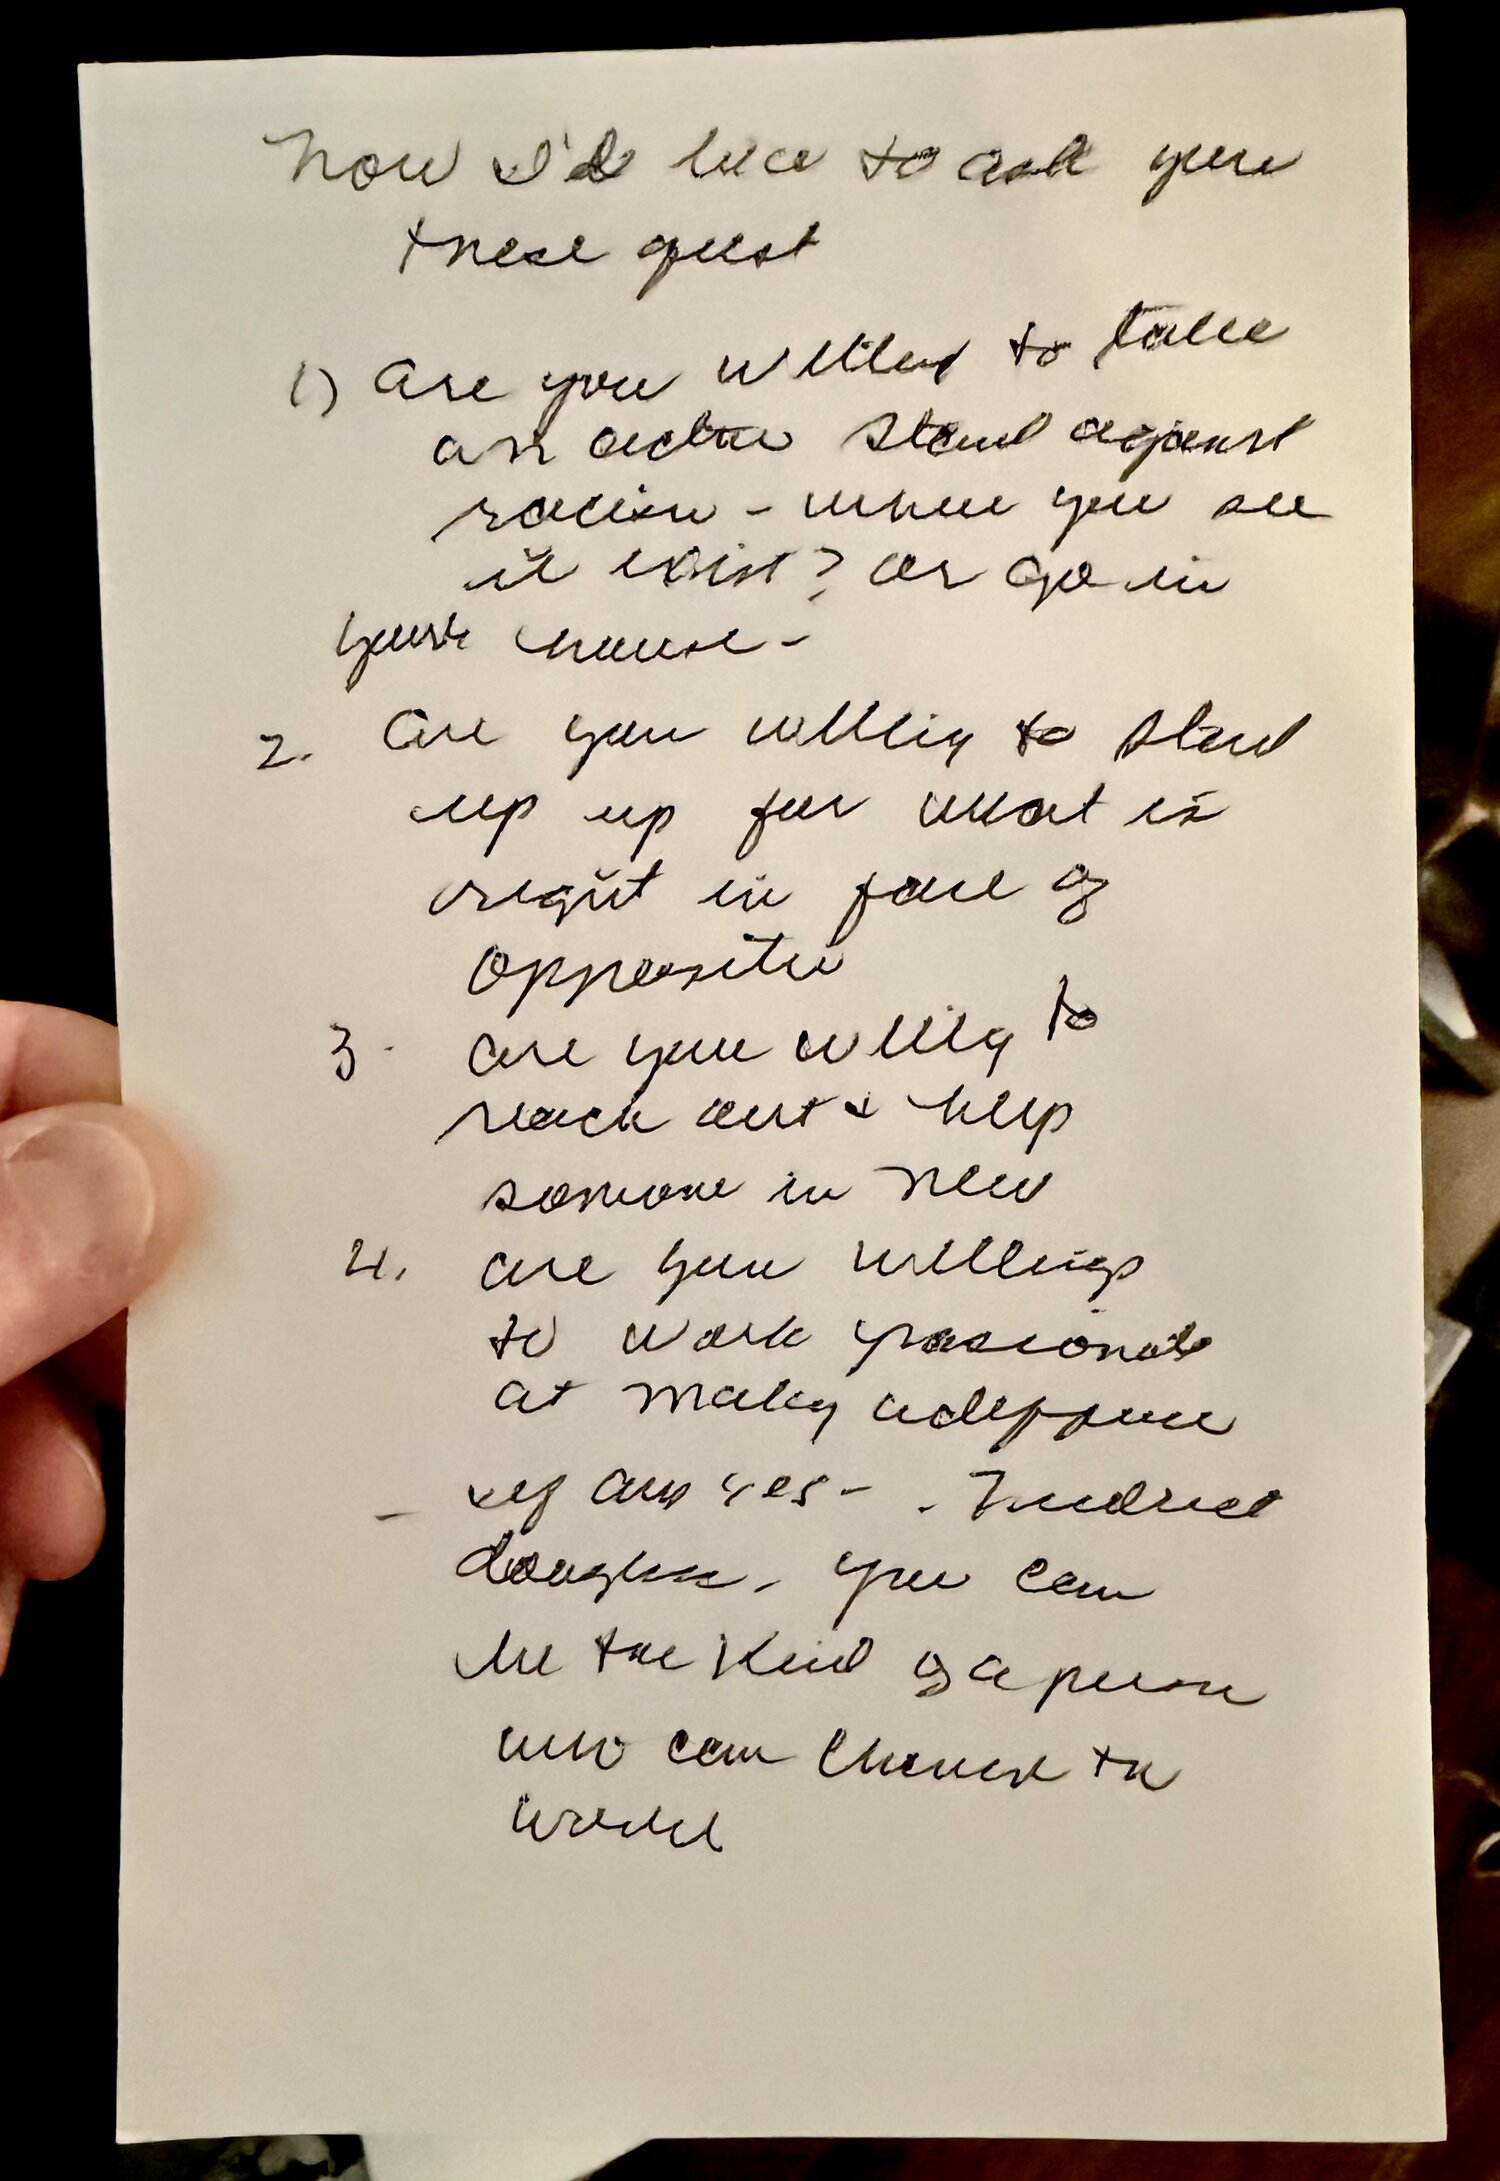 Now I'd like to ask you
these quest
1) Are you willing to take
an active stand against
racism - where you see
it exist? or go in
your house -
2. Are you willing to stand
up up for what is
right in face of
opposition
3. are you willing to
reach out & help
someone in need
4. are you willing
to work passionate
at making a difference
- If ans yes -
you can
be the kind of a person
who can change the
world